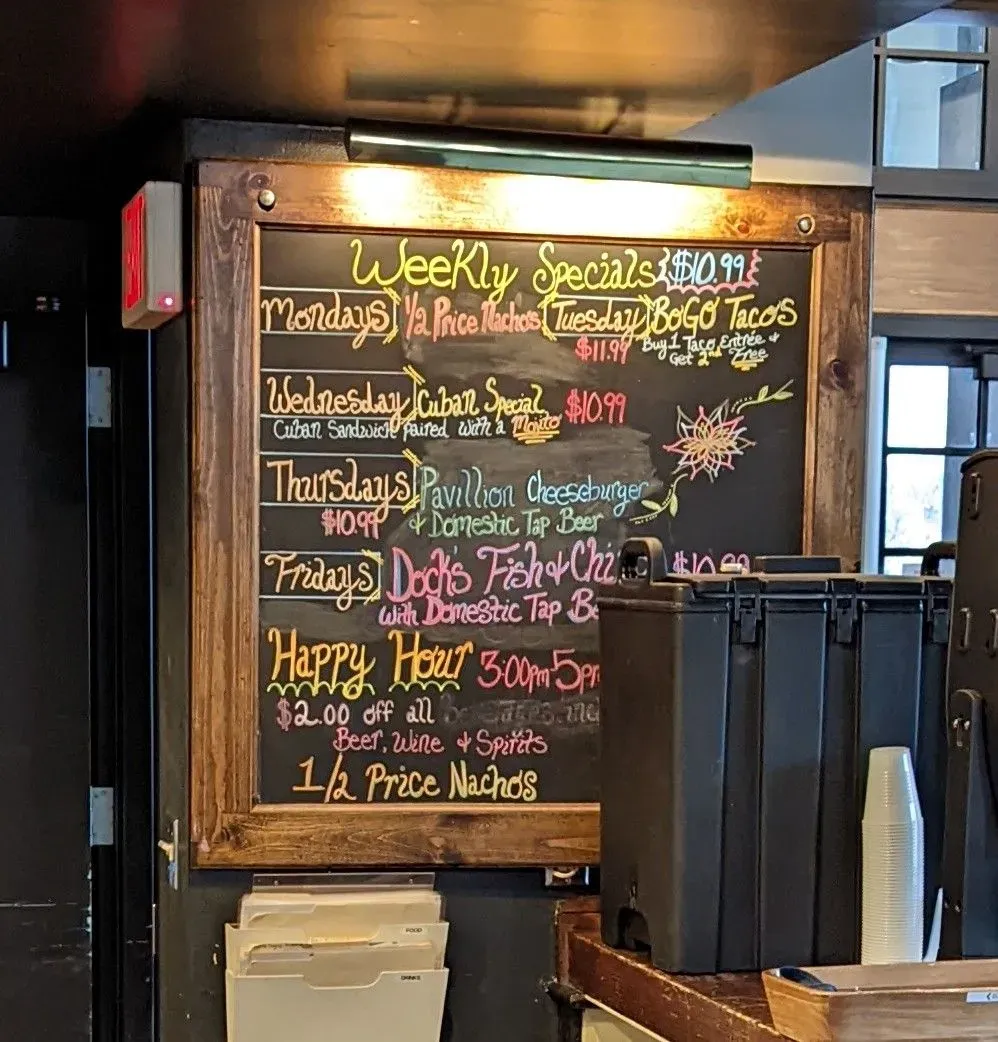 Weekly Specials $10.99
Mondays 1/2 Price Nachos Tuesday BoGo Tacos
$11.99 Buy 1 Taco Entrée &
Get 2nd Free
Wednesday Cuban Special $10.99
Cuban Sandwich paired with a Mojito
Thursdays Pavillion Cheeseburger
$10.99 & Domestic Tap Beer
Fridays Dock's Fish & Chi $10.99
with Domestic Tap Be
Happy Hour 3:00pm-5pm
$2.00 off all
Beer, Wine & Spirits
1/2 Price Nachos
FOOD
DRINKS